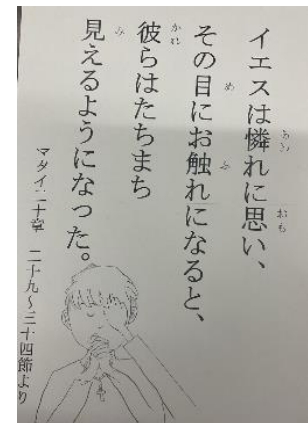 イエスは憐れに思い、
その目にお触れになると、
彼らはたちまち
見えるようになった。
マタイ二十章 二十九〜三十四節より